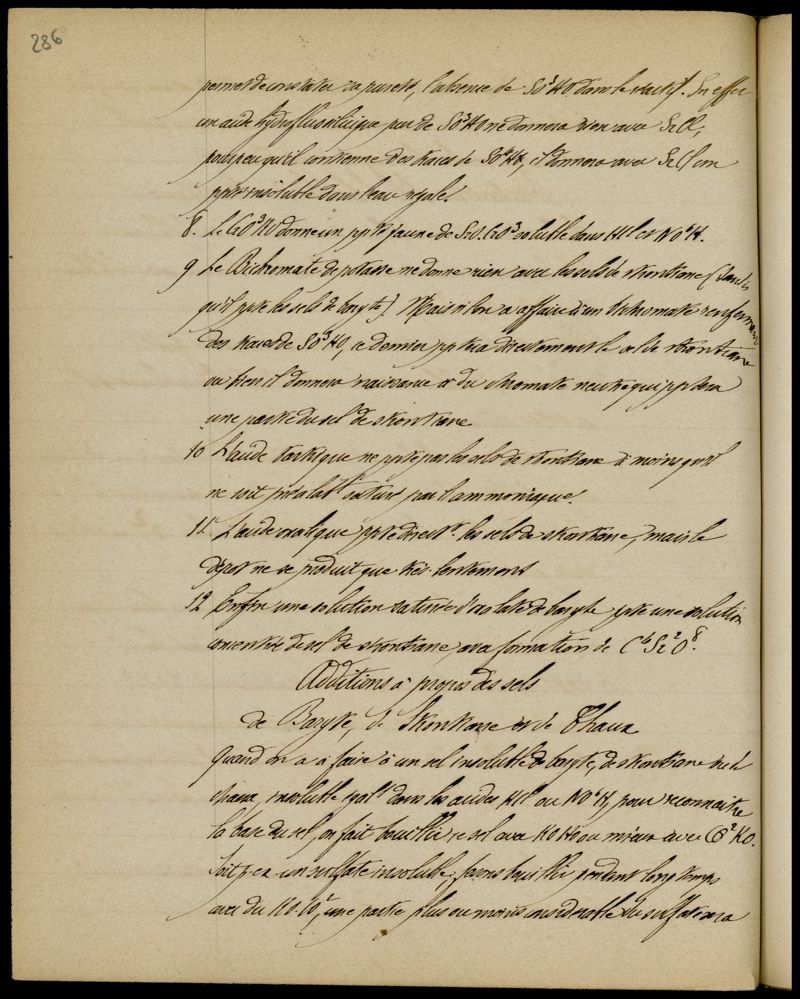 286
permet de constater sa pureté, l'absence de SO³HO dans le réactif. En effet
un acide hydrofluosilicique pur de SO³HO ne donnera rien avec SrCl,
pour peu qu'il contienne des traces de SO³HO, il donnera avec SrCl un
ppté insoluble dans l'eau régale.
8. Le CrO³KO donne un ppté jaune de SrO.CrO³ soluble dans HCl et NO⁶H.
9 Le Bichromate de potasse ne donne rien avec les sels de strontiane (tandis
qu'il ppte les sels de baryte). Mais si l'on a affaire à un bichromate renfermant
des traces de SO³HO, ce dernier pptera directement le sel de strontiane
ou bien il donnera naissance à du chromate neutre qui pptera
une partie du sel de strontiane
10 L'acide tartrique ne ppte pas les sels de strontiane à moins qu'il
ne soit préalablt saturé par l'ammoniaque.
11. L'acide oxalique ppte directt les sels de strontiane, mais le
dépôt ne se produit que très lentement
12 Enfin une solution saturée d'oxalate de baryte ppte une solution
concentrée de sel de strontiane, avec formation de C⁴Sr²O⁸.
Additions à propos des sels
de Baryte, de Strontiane et de Chaux
Quand on a à faire à un sel insoluble de baryte, de strontiane ou de
chaux, insoluble égalt dans les acides HCl ou NO⁶H, pour reconnaître
la base du sel, on fait bouillir ce sel avec KOHO ou mieux avec CO²KO.
Soit p. ex un sulfate insoluble, faisons bouillir pendant longtemps
avec du KO.CO², une partie plus ou moins considérable du sulfate sera